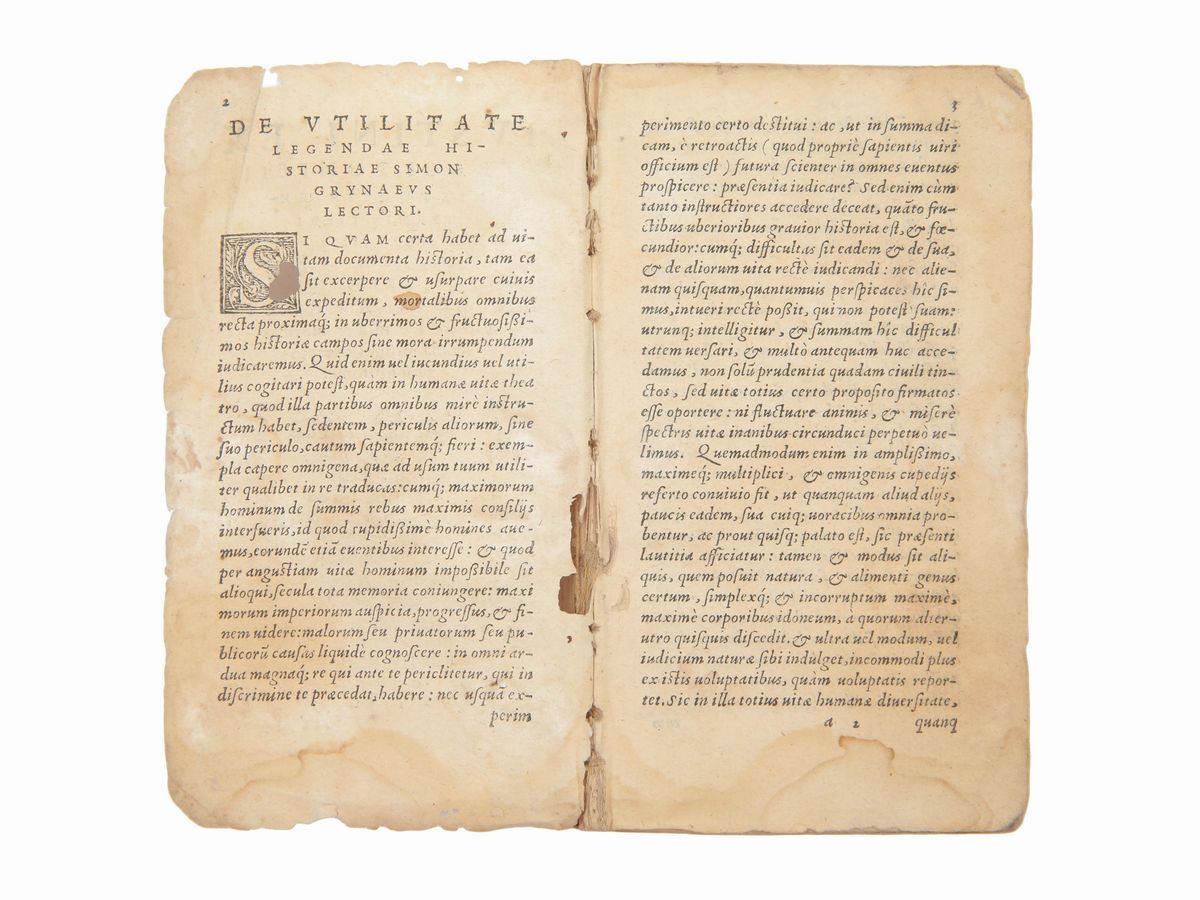 2
DE VTILITATE
LEGENDAE HI-
STORIAE SIMON
GRYNAEVS
LECTORI.
SI QVAM certa habet ad ui-
tam documenta historia, tam ea
sit excerpere & usurpare cuiuis
expeditum, mortalibus omnibus
recta proximaq́; in uberrimos & fructuosißi-
mos historiæ campos sine mora irrumpendum
iudicaremus. Quid enim uel iucundius uel uti-
lius cogitari potest, quàm in humanæ uitæ thea
tro, quod illa partibus omnibus mirè instru-
ctum habet, sedentem, periculis aliorum, sine
suo periculo, cautum sapientemq́; fieri: exem-
pla capere omnigena, quæ ad usum tuum utili-
ter qualibet in re traducas: cumq́; maximorum
hominum de summis rebus maximis consilijs
interfueris, id quod cupidißimè homines aue-
mus, eorundē etiā euentibus interesse: & quod
per angustiam uitæ hominum impoßibile sit
alioqui, secula tota memoria coniungere: maxi
morum imperiorum auspicia, progressus, & fi-
nem uidere: malorum seu priuatorum seu pu-
blicorū causas liquidè cognoscere: in omni ar-
dua magnaq́; re qui ante te periclitetur, qui in
discrimine te præcedat, habere: nec usquā ex-
perim
3
perimento certo destitui: ac, ut in summa di-
cam, è retroactis (quod propriè sapientis uiri
officium est) futura scienter in omnes euentus
prospicere: præsentia iudicare? Sed enim cùm
tanto instructiores accedere deceat, quāto fru-
ctibus uberioribus grauior historia est, & fœ-
cundior: cumq́; difficultas sit eadem & de sua,
& de aliorum uita rectè iudicandi: nec alie-
nam quisquam, quantumuis perspicaces hîc si-
mus, intueri rectè poßit, qui non potest suam:
utrunq; intelligitur, & summam hîc difficul
tatem uersari, & multò antequam huc acce-
damus, non solū prudentia quadam ciuili tin-
ctos, sed uitæ totius certo proposito firmatos
esse oportere: ni fluctuare animis, & miserè
spectris uitæ inanibus circunduci perpetuò ue-
limus. Quemadmodum enim in amplißimo,
maximeq́; multiplici, & omnigenis cupedijs
referto conuiuio fit, ut quanquam aliud alijs,
paucis eadem, sua cuiq; uoracibus omnia pro-
bentur, ac prout quisq; palato est, sic præsenti
lautitia afficiatur: tamen & modus sit ali-
quis, quem posuit natura, & alimenti genus
certum, simplexq́; & incorruptum maximè,
maximè corporibus idoneum, à quorum alter-
utro quisquis discedit, & ultra uel modum, uel
iudicium naturæ sibi indulget, incommodi plus
ex istis uoluptatibus, quàm uoluptatis repor-
tet. Sic in illa totius uitæ humanæ diuersitate,
a 2 quanq